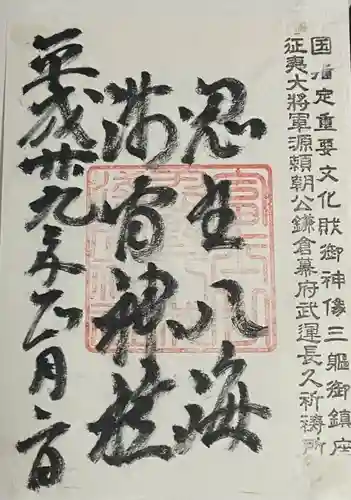 国指定重要文化財御神像三軀御鎮座
征夷大將軍源頼朝公鎌倉幕府武運長久祈禱所
忍野八海
浅間神社
平成廿九年 月 日